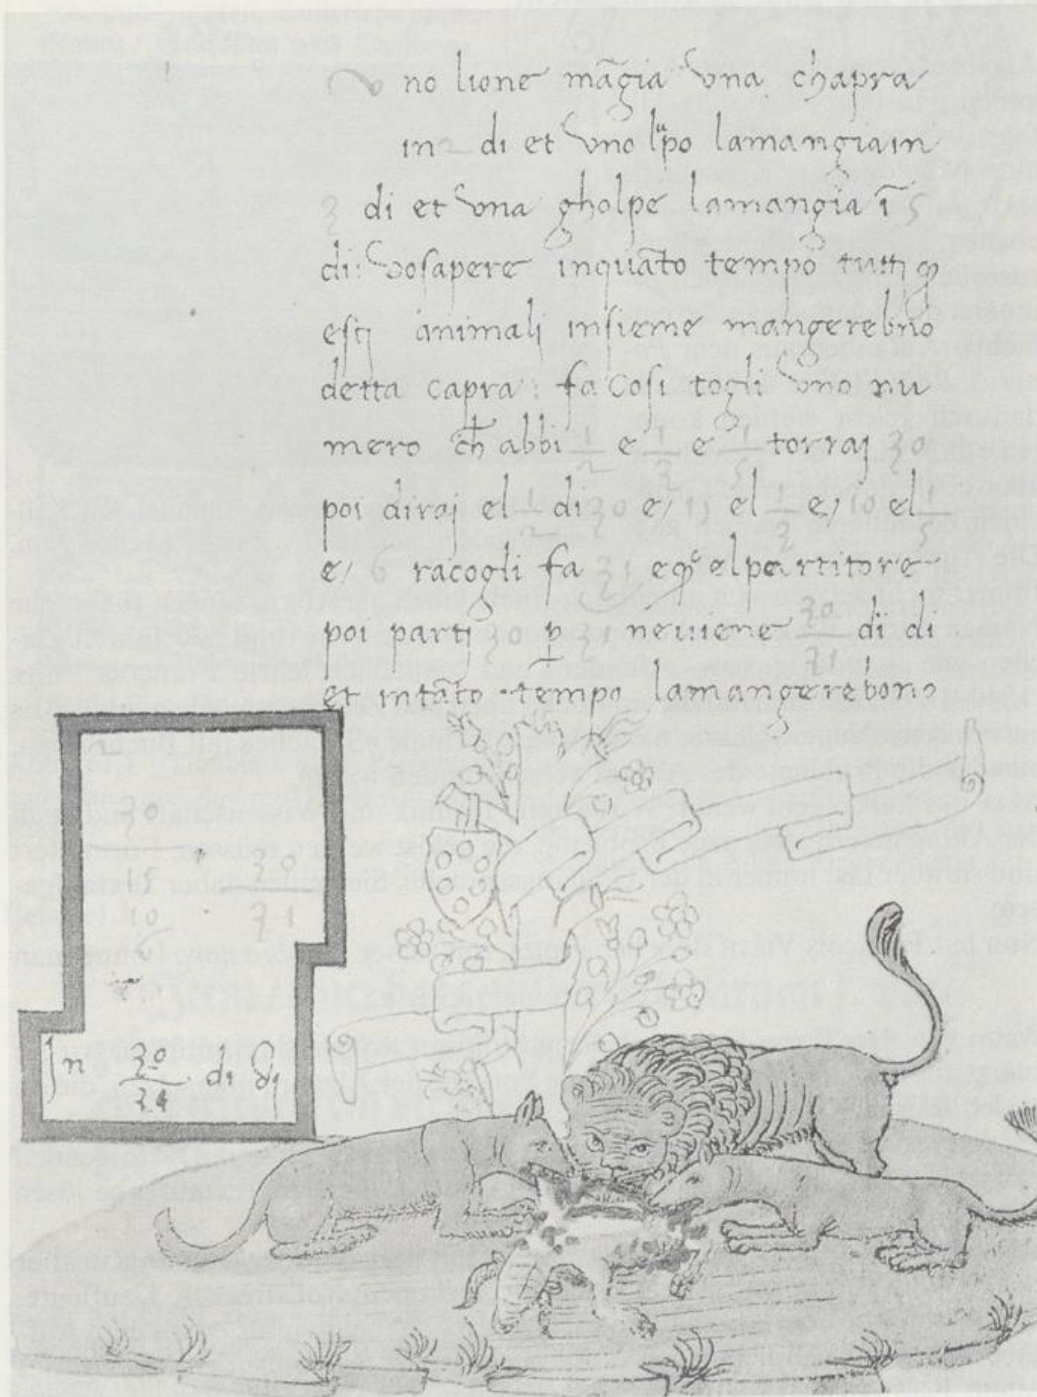 Vno lione mãgia vna chapra
in 2 di et vno lupo lamangia in
3 di et vna gholpe lamangia ĩ 5
di: vosapere inquãto tempo tutti q
esti animalj insieme mangerebno
detta capra: fa cosi togli vno nu
mero ch abbi 1/2 e 1/3 e 1/5 torraj 30
poi diraj el 1/2 di 30 e/ 15 el 1/3 e/ 10 el 1/5
e/ 6 racogli fa 31 e qo el partitore
poi partj 30 p 31 neviene 30/31 di di
et intãto tempo lamangerebono
30
15
10
6
30/31
In 30/31 di dj